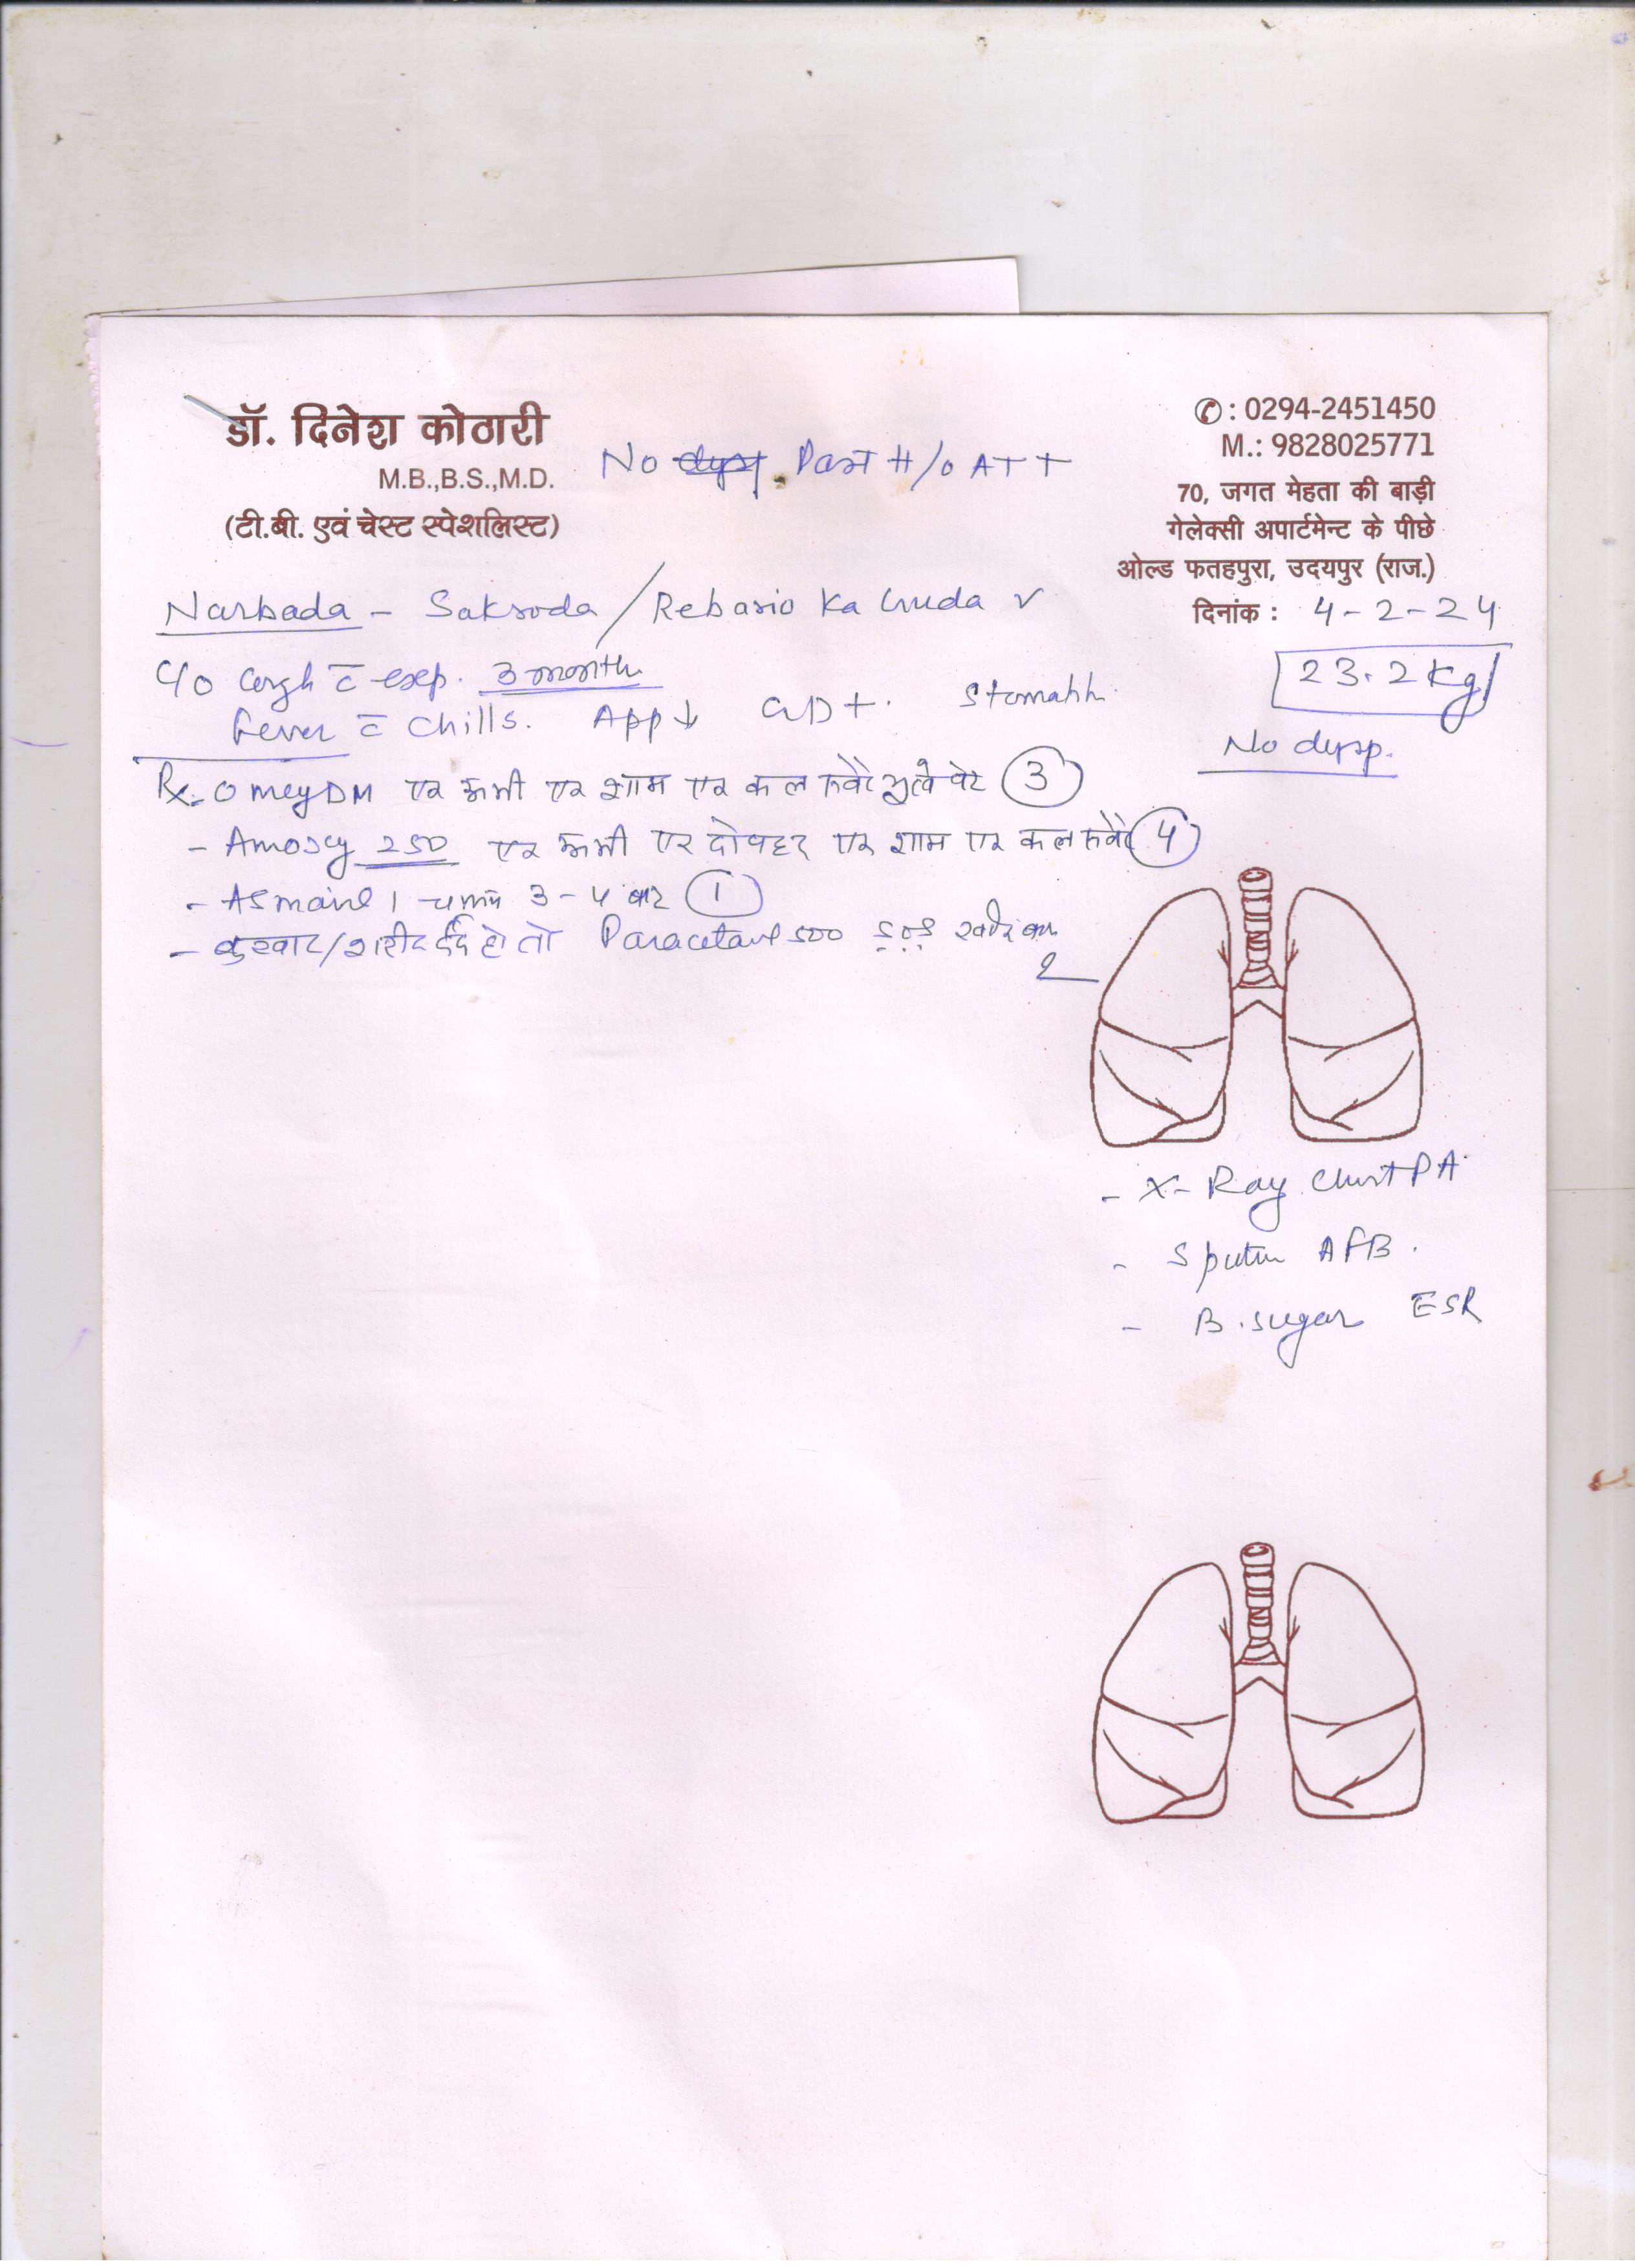 डॉ. दिनेश कोठारी
M.B.,B.S.,M.D.
(टी.बी. एवं चेस्ट स्पेशलिस्ट)
No Past H/o ATT
✆: 0294-2451450
M.: 9828025771
70, जगत मेहता की बाड़ी
गेलेक्सी अपार्टमेन्ट के पीछे
ओल्ड फतहपुरा, उदयपुर (राज.)
दिनांक : 4-2-24
Narbada - Sakroda / Rebario Ka
23.2 kg
C/o Cough c̄ exp. 3 month
Fever c̄ Chills. App↓ Stomahh
No dysp.
Rx- Omey DM एक अभी एक शाम एक कल सवेरे भूखे पेट 3
- Amoxy 250 एक अभी एक दोपहर एक शाम एक कल सवेरे 4
- 1 चम्मच 3-4 बार 1
- बुखार/शरीर दर्द हो तो 500
2
- X-Ray Chest PA
- Sputum AFB.
- B. sugar ESR